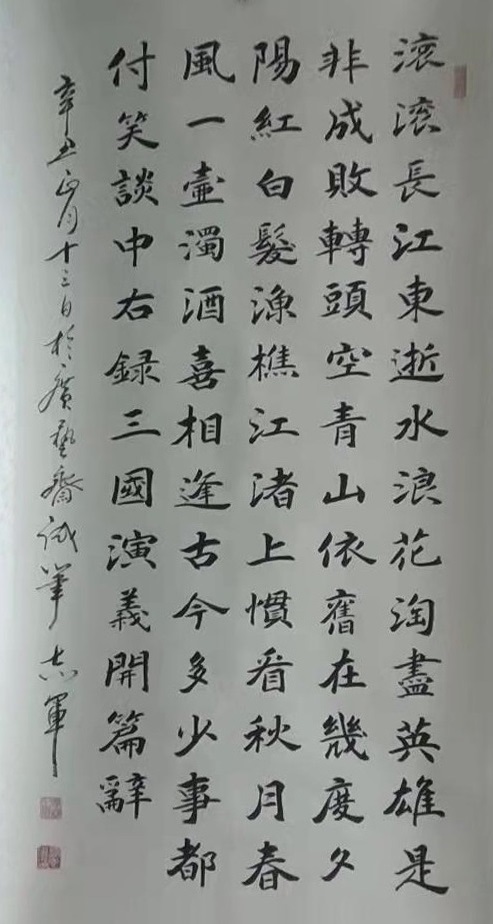 滚滚長江東逝水浪花淘盡英雄是
非成敗轉頭空青山依舊在幾度夕
陽紅白髮漁樵江渚上慣看秋月春
風一壺濁酒喜相逢古今多少事都
付笑談中右録三國演義開篇辭
辛丑正月十三日於廣藝齋試筆志軍